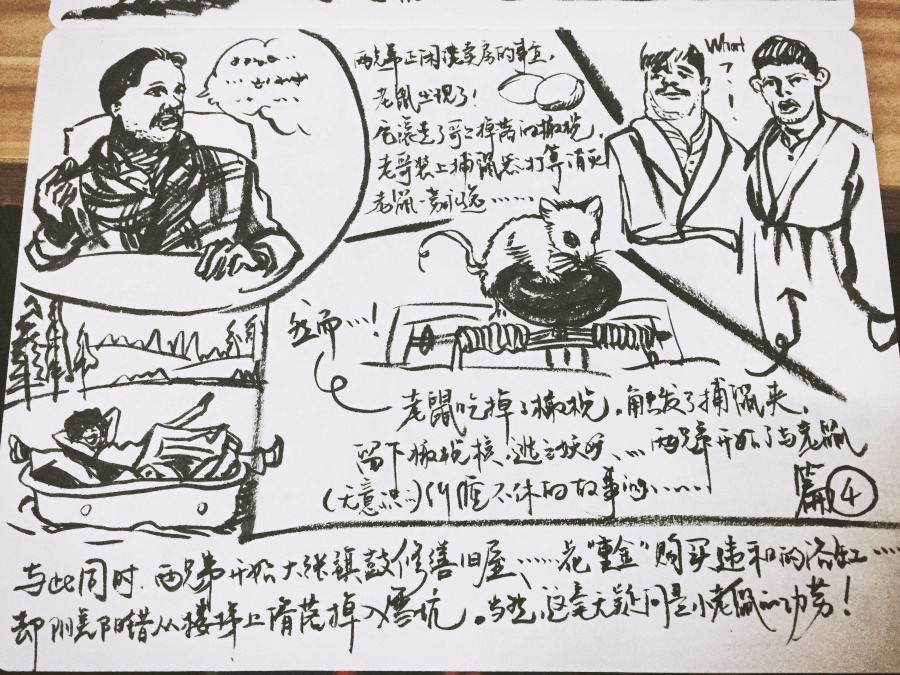 两兄弟正闲谈卖房的事宜，
老鼠出现了！
它滚走了哥哥掉落的橄榄，
老哥装上捕鼠器打算消灭
老鼠一劳永逸……
What
?
然而…!
老鼠吃掉了橄榄，触发了捕鼠夹，
留下橄榄核，逃之夭夭、…两兄弟开始了与老鼠
(无意识)纠缠不休的故事……
篇④
与此同时，两兄弟开始大张旗鼓修缮旧屋、……花“重金”购买违和的浴缸……
却阴差阳错从楼梯上滑落掉入雪坑。当然，这毫无疑问是小老鼠的功劳！